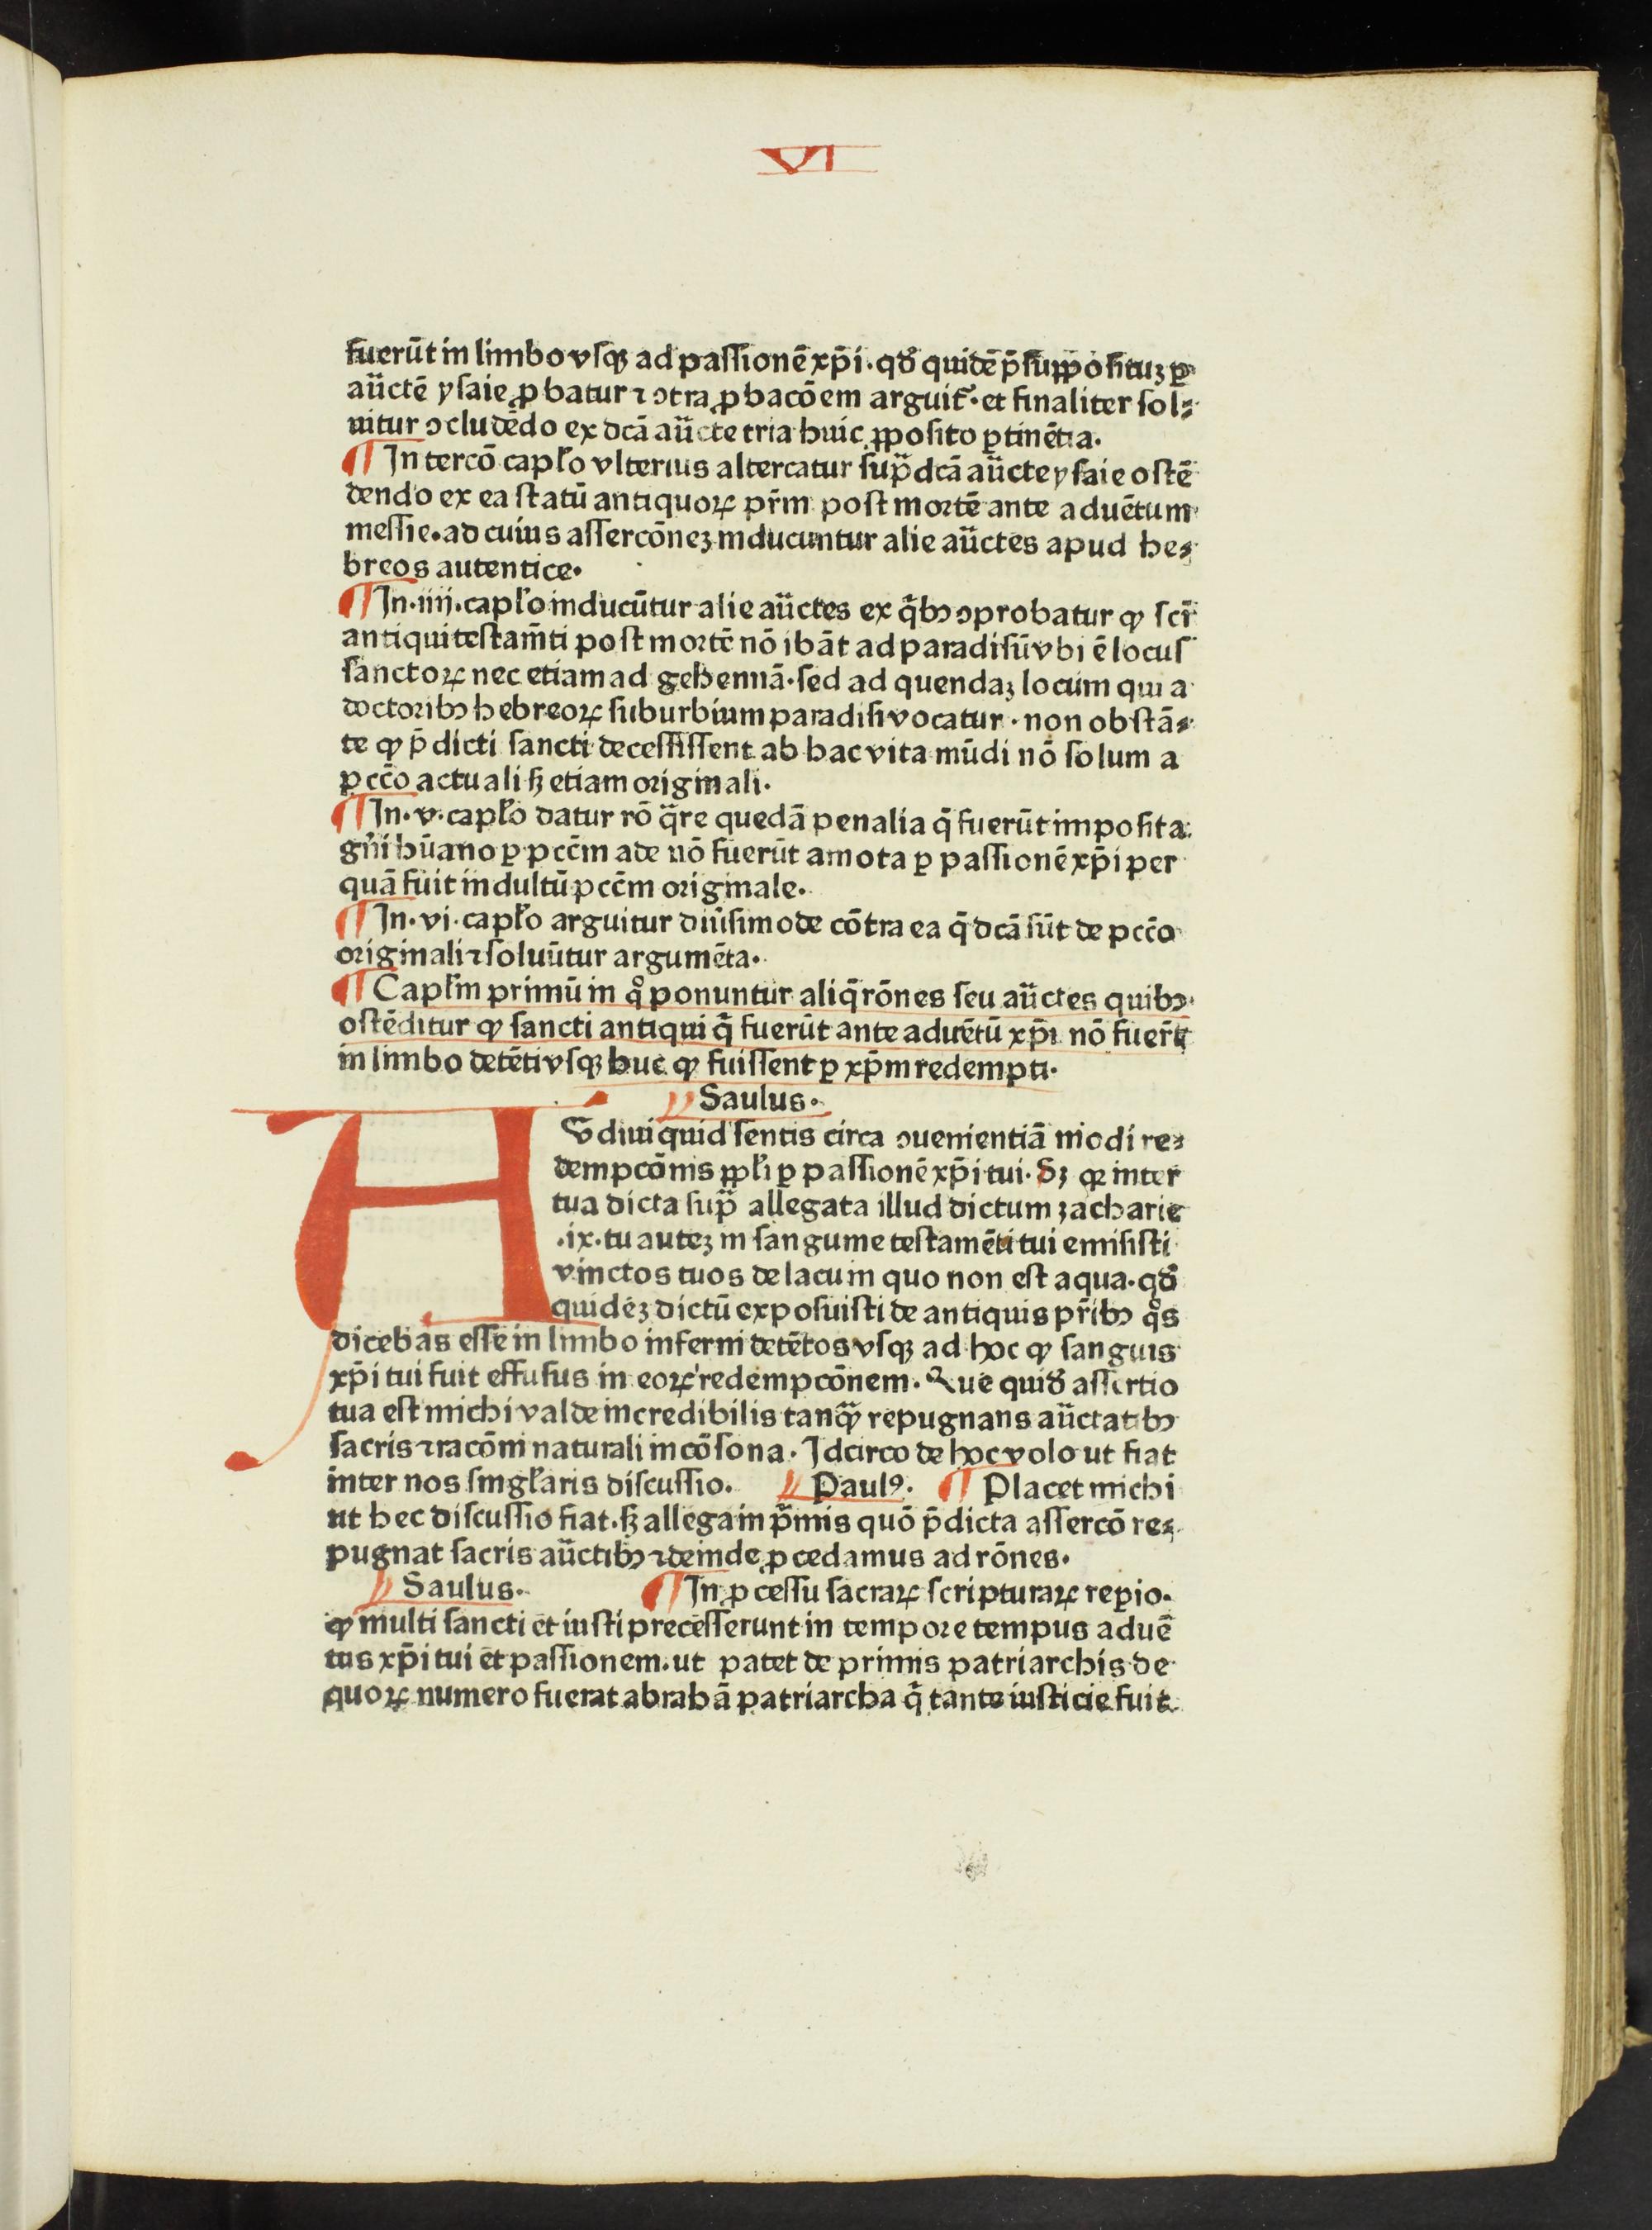 VI
fuerūt in limbo vſqꝫ ad paſſionē xp̄i· qđ quidē p̄ſuppoſituꝫ ꝑ
auc̄tē yſaie ꝓbatur ⁊ ↄtra ꝓbacōem arguit᷑· et finaliter ſol⸗
uitur ↄcludēdo ex dcā auc̄te tria huic ꝓpoſito ꝑtinētia·
¶ In tercō capło vlterius altercatur ſupᷓ dcā auc̄te yſaie oſtē
dendo ex ea ſtatū antiquoꝝ pr̄m poſt mortē ante aduētum
meſſie· ad cuius aſſercōneꝫ inducuntur alie auc̄tes apud he⸗
breos autentice·
¶ In· iiij· capło inducūtur alie auc̄tes ex q̄bꝰ ↄprobatur ꝙ ſcī
antiqui teſtam̄ti poſt mortē nō ibāt ad paradiſū vbi ē locuſ
ſanctoꝝ nec etiam ad gehennā· ſed ad quendaꝫ locum qui a
doctoribꝰ hebreoꝝ ſuburbium paradiſi vocatur· non obſtā⸗
te ꝙ p̄dicti ſancti deceſſiſſent ab hac vita mūdi nō ſolum a
pcc̄o actuali ſꝫ etiam originali·
¶ In· v· capło datur rō q̄re quedā penalia q̄ fuerūt impoſita
gn̄i hūano ꝑ pcc̄m ade nō fuerūt amota ꝑ paſſionē xp̄i per
quā fuit indultū pcc̄m originale·
¶ In· vi· capło arguitur diuſimode cōtra ea q̄ dcā ſūt de pcc̄o
originali ⁊ ſoluūtur argumēta·
¶ Capłm primū in qͦ ponuntur aliq̄ rōnes ſeu auc̄tes quibꝰ
oſtēditur ꝙ ſancti antiqui q̄ fuerūt ante aduētū xp̄i nō fuer̄t
in limbo detēti vſqꝫ huc ꝙ fuiſſent ꝑ xp̄m redempti·
Saulus·
A Vdiui quid ſentis circa ↄuenientiā modi re⸗
dempcōnis ppłi ꝑ paſſionē xp̄i tui· Sꝫ qꝛ inter
tua dicta ſupᷓ allegata illud dictum zacharie
·ix· tu auteꝫ in ſanguine teſtamēti tui emiſiſti
vinctos tuos de lacu in quo non eſt aqua· qđ
quideꝫ dictū expoſuiſti de antiquis pr̄ibꝰ qͦs
dicebas eſſe in limbo inferni detētos vſqꝫ ad hoc ꝙ ſanguis
xp̄i tui fuit effuſus in eoꝝ redempcōnem· Que quiđ aſſertio
tua eſt michi valde incredibilis tanqᷓ repugnans auc̄tatibꝰ
ſacris ⁊ racōni naturali incōſona· Idcirco de hoc volo ut fiat
inter nos ſingłaris diſcuſſio· Paulꝰ· ¶ Placet michi
ut hec diſcuſſio fiat· ſꝫ allega in p̄mis quō p̄dicta aſſercō re⸗
pugnat ſacris auc̄tibꝰ ⁊ deinde ꝓcedamus ad rōnes·
Saulus· ¶ In ꝓceſſu ſacraꝝ ſcripturaꝝ reꝑio·
ꝙ multi ſancti et iuſti preceſſerunt in tempore tempus aduē
tus xp̄i tui et paſſionem· ut patet de primis patriarchis de
quoꝝ numero fuerat abrahā patriarcha q̄ tante iuſticie fuit